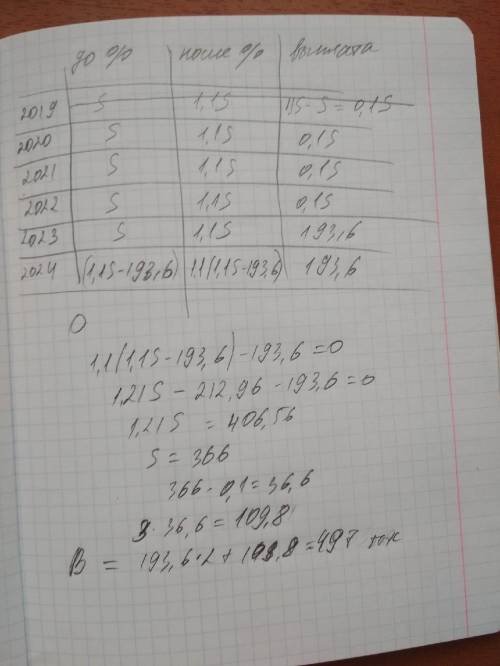 до % после % выплата
2019 S 1,1S 1,1S-S = 0,1S
2020 S 1,1S 0,1S
2021 S 1,1S 0,1S
2022 S 1,1S 0,1S
2023 S 1,1S 193,6
2024 (1,1S-193,6) 1,1(1,1S-193,6) 193,6
0
1,1(1,1S-193,6)-193,6=0
1,21S - 212,96 - 193,6=0
1,21S = 406,56
S = 366
366 · 0,1 = 36,6
3 · 36,6 = 109,8
B = 193,6·2 + 109,8 = 497 тыс